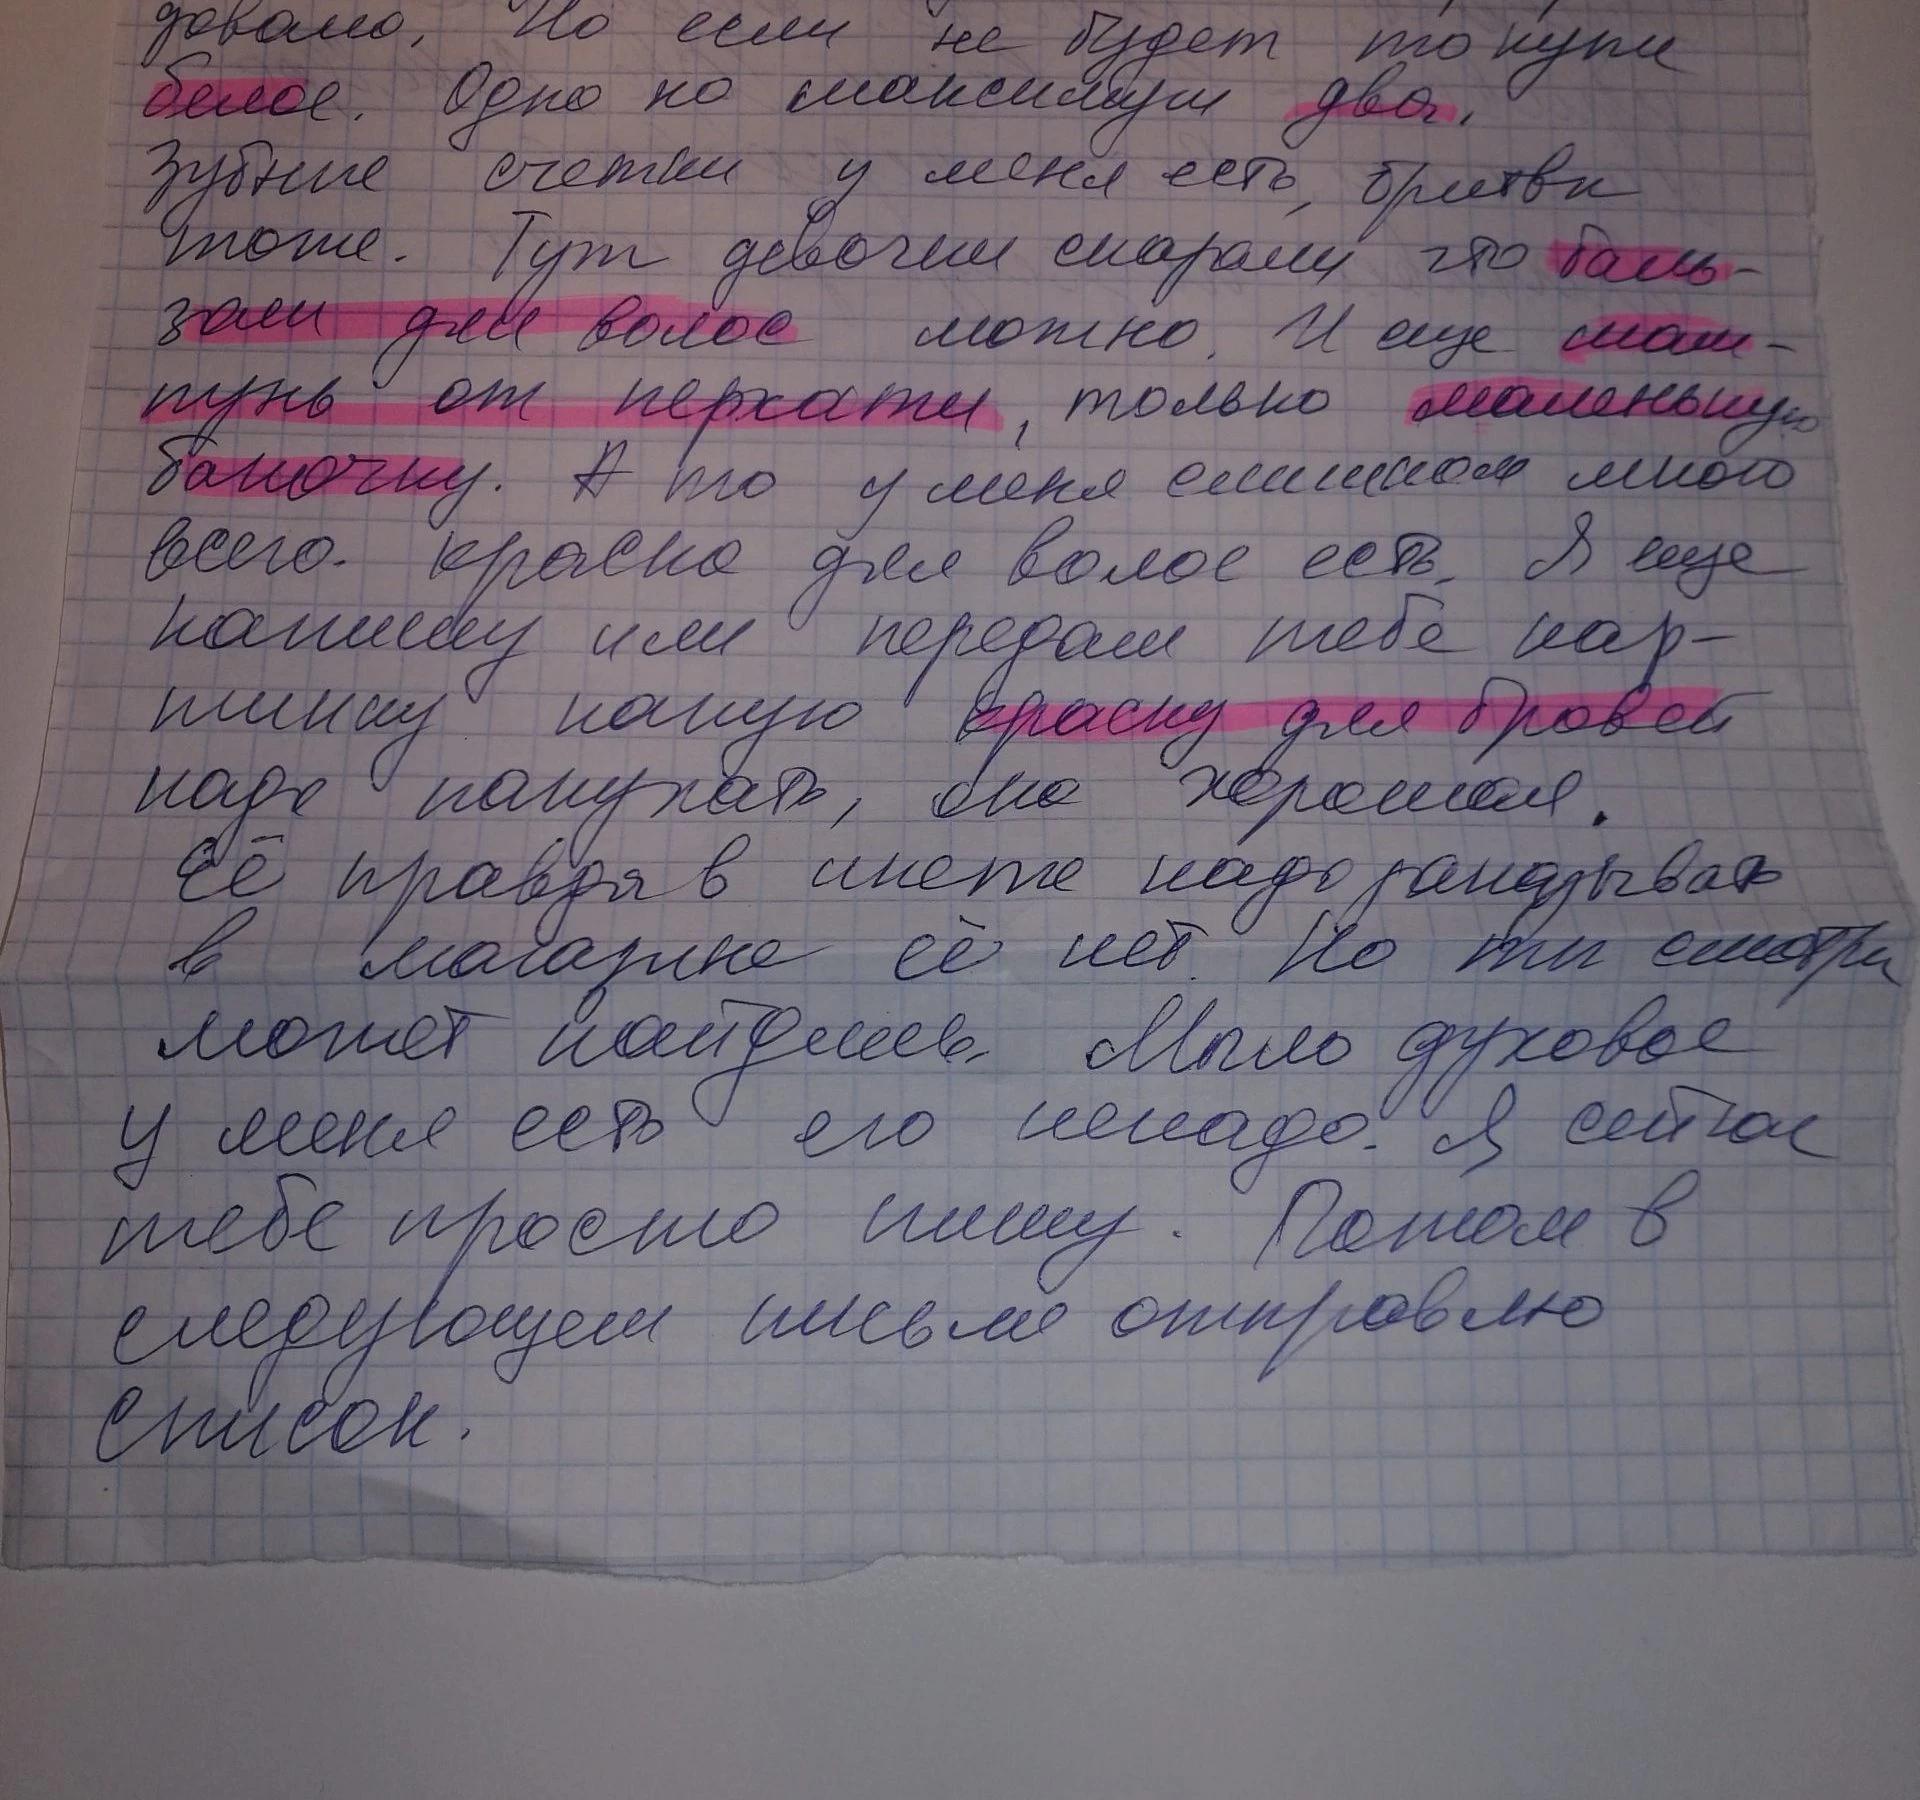 довало. Но если не будет то купи
белое. Одно но максимум два.
Зубные счетки у меня есть, бритвы
тоже. Тут девочки сказали что баль-
зам для волос можно. И еще шам-
пунь от перхати, только маленькую
баночку. А то у меня слишком много
всего. Краска для волос есть. Я еще
напишу или передам тебе кар-
тинку какую краску для бровей
надо покупать, она хорошая.
Её правда в инете надо заказывать
в магазине её нет. Но ты смотри
может найдешь. Мыло духовое
у меня есть его ненадо. Я сейчас
тебе просто пишу. Потом в
следующем письме отправлю
список.